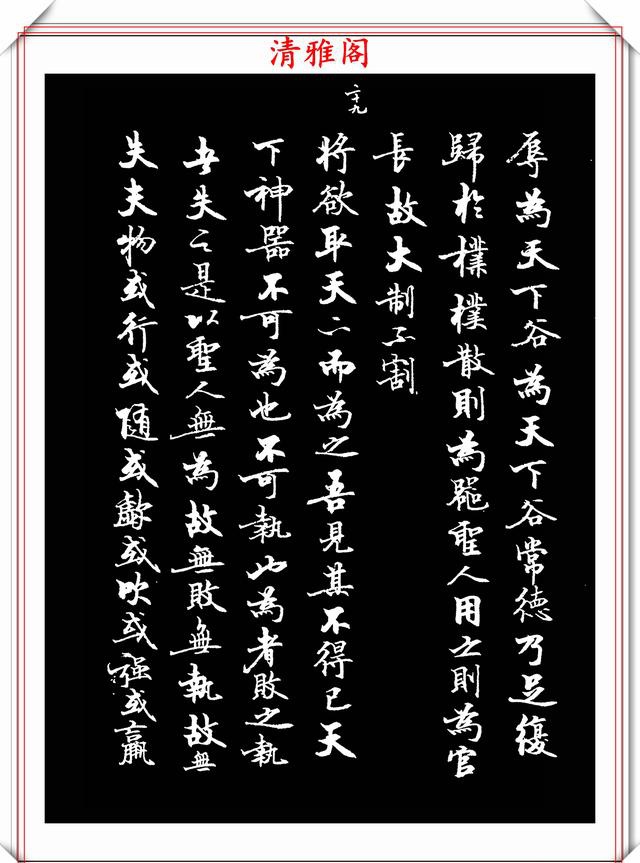 清雅阁
辱為天下谷為天下谷常德乃足復
歸於樸樸散則為器聖人用之則為官
長故大制不割
二十九
將欲取天下而為之吾見其不得已天
下神器不可為也不可執也為者敗之執
者失之是以聖人無為故無敗無執故無
失夫物或行或隨或歔或吹或强或羸